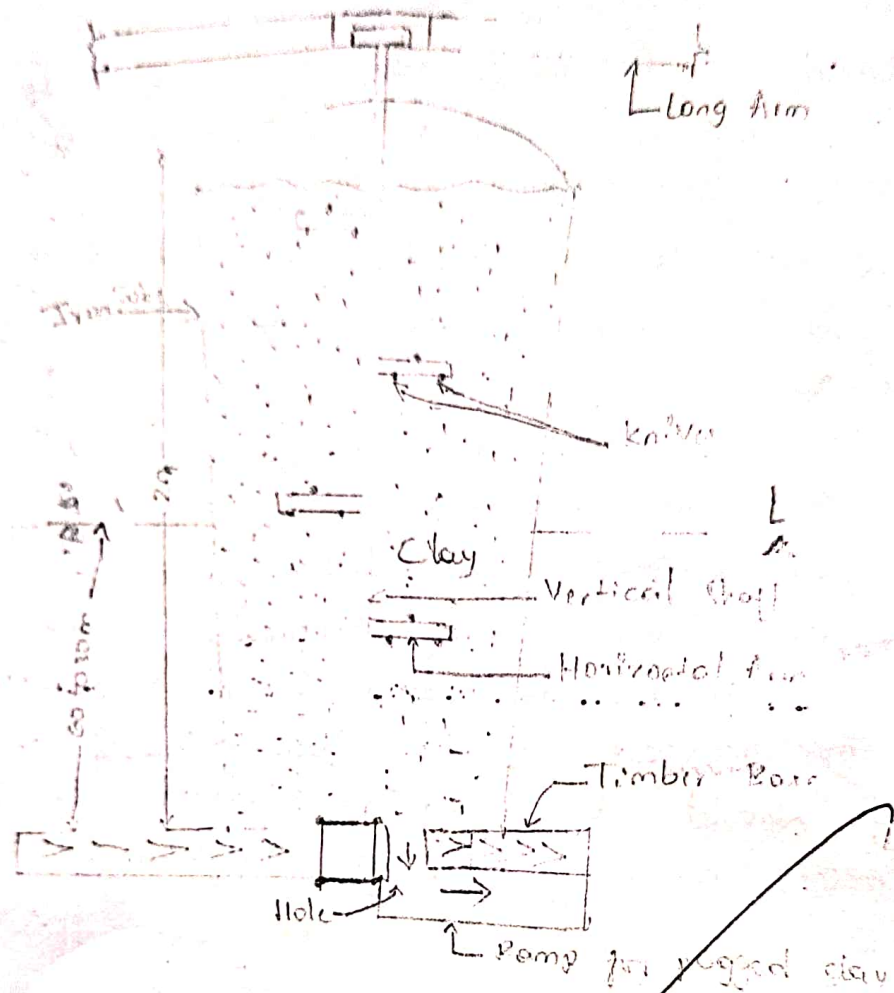 Long Arm
Knives
2m
Clay
Vertical Shaft
Horizontal Arm
Timber Base
Hole
Ramp for pugged clay